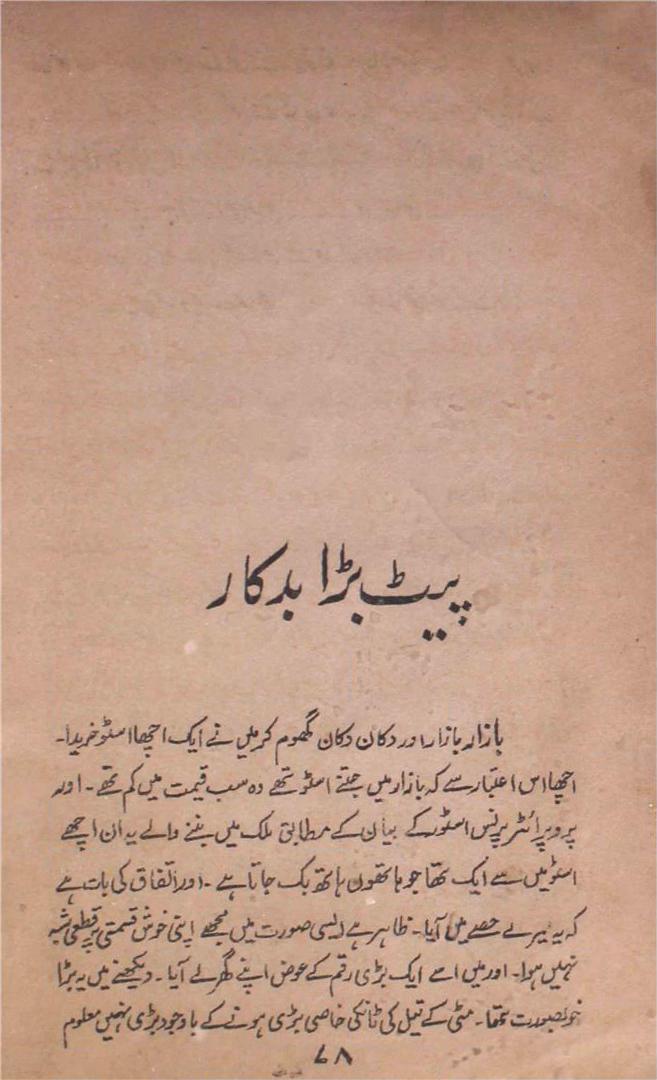 پیٹ بڑا بدکار
بازار بازار اور دکان دکان گھوم کر میں نے ایک اچھا اسٹو خریدا۔
اچھا اس اعتبار سے کہ بازار میں جتنے اسٹو تھے وہ سب قیمت میں کم تھے۔ اور
پروپرائٹر پرنس اسٹور کے بیان کے مطابق ملک میں بننے والے یہ ان اچھے
اسٹو میں سے ایک تھا جو ہاتھوں ہاتھ بک جاتا ہے۔ اور اتفاق کی بات ہے
کہ یہ میرے حصے میں آیا۔ ظاہر ہے ایسی صورت میں مجھے اپنی خوش قسمتی پر قطعی شبہ
نہیں ہوا۔ اور میں اسے ایک بڑی رقم کے عوض اپنے گھر لے آیا۔ دیکھنے میں یہ بڑا
خوبصورت تھا۔ مٹی کے تیل کی ٹانکی خاصی بڑی ہونے کے باوجود بڑی نہیں معلوم
۶۸